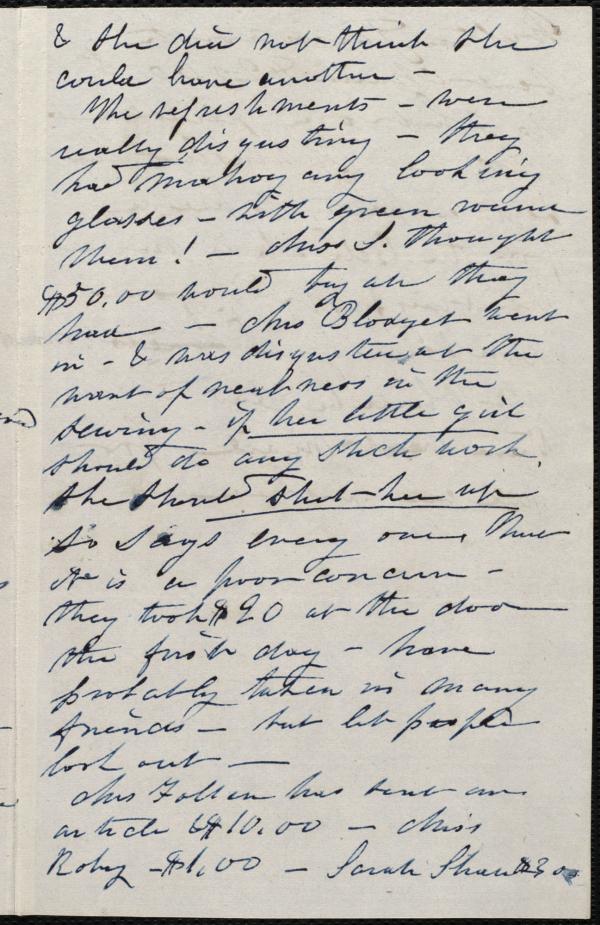 & she did not think she
could have another –
The refreshments – were
really disgusting – they
had mahogany looking
glasses – with green round
them! – Miss S. thought
$50.00 would buy all they
had – Mrs Blodget went
in – & was disgusted at the
want of neatness in the
sewing – if her little girl
should do any such work,
she should shut her up
So says every one, that
it is a poor concern –
they took $20 at the door
the first day – have
probably taken in many
friends – but let people
look out –
Mrs Follen has sent an
article & $10.00 – Miss
Roby – $1,00 – Sarah Shaw $3 00